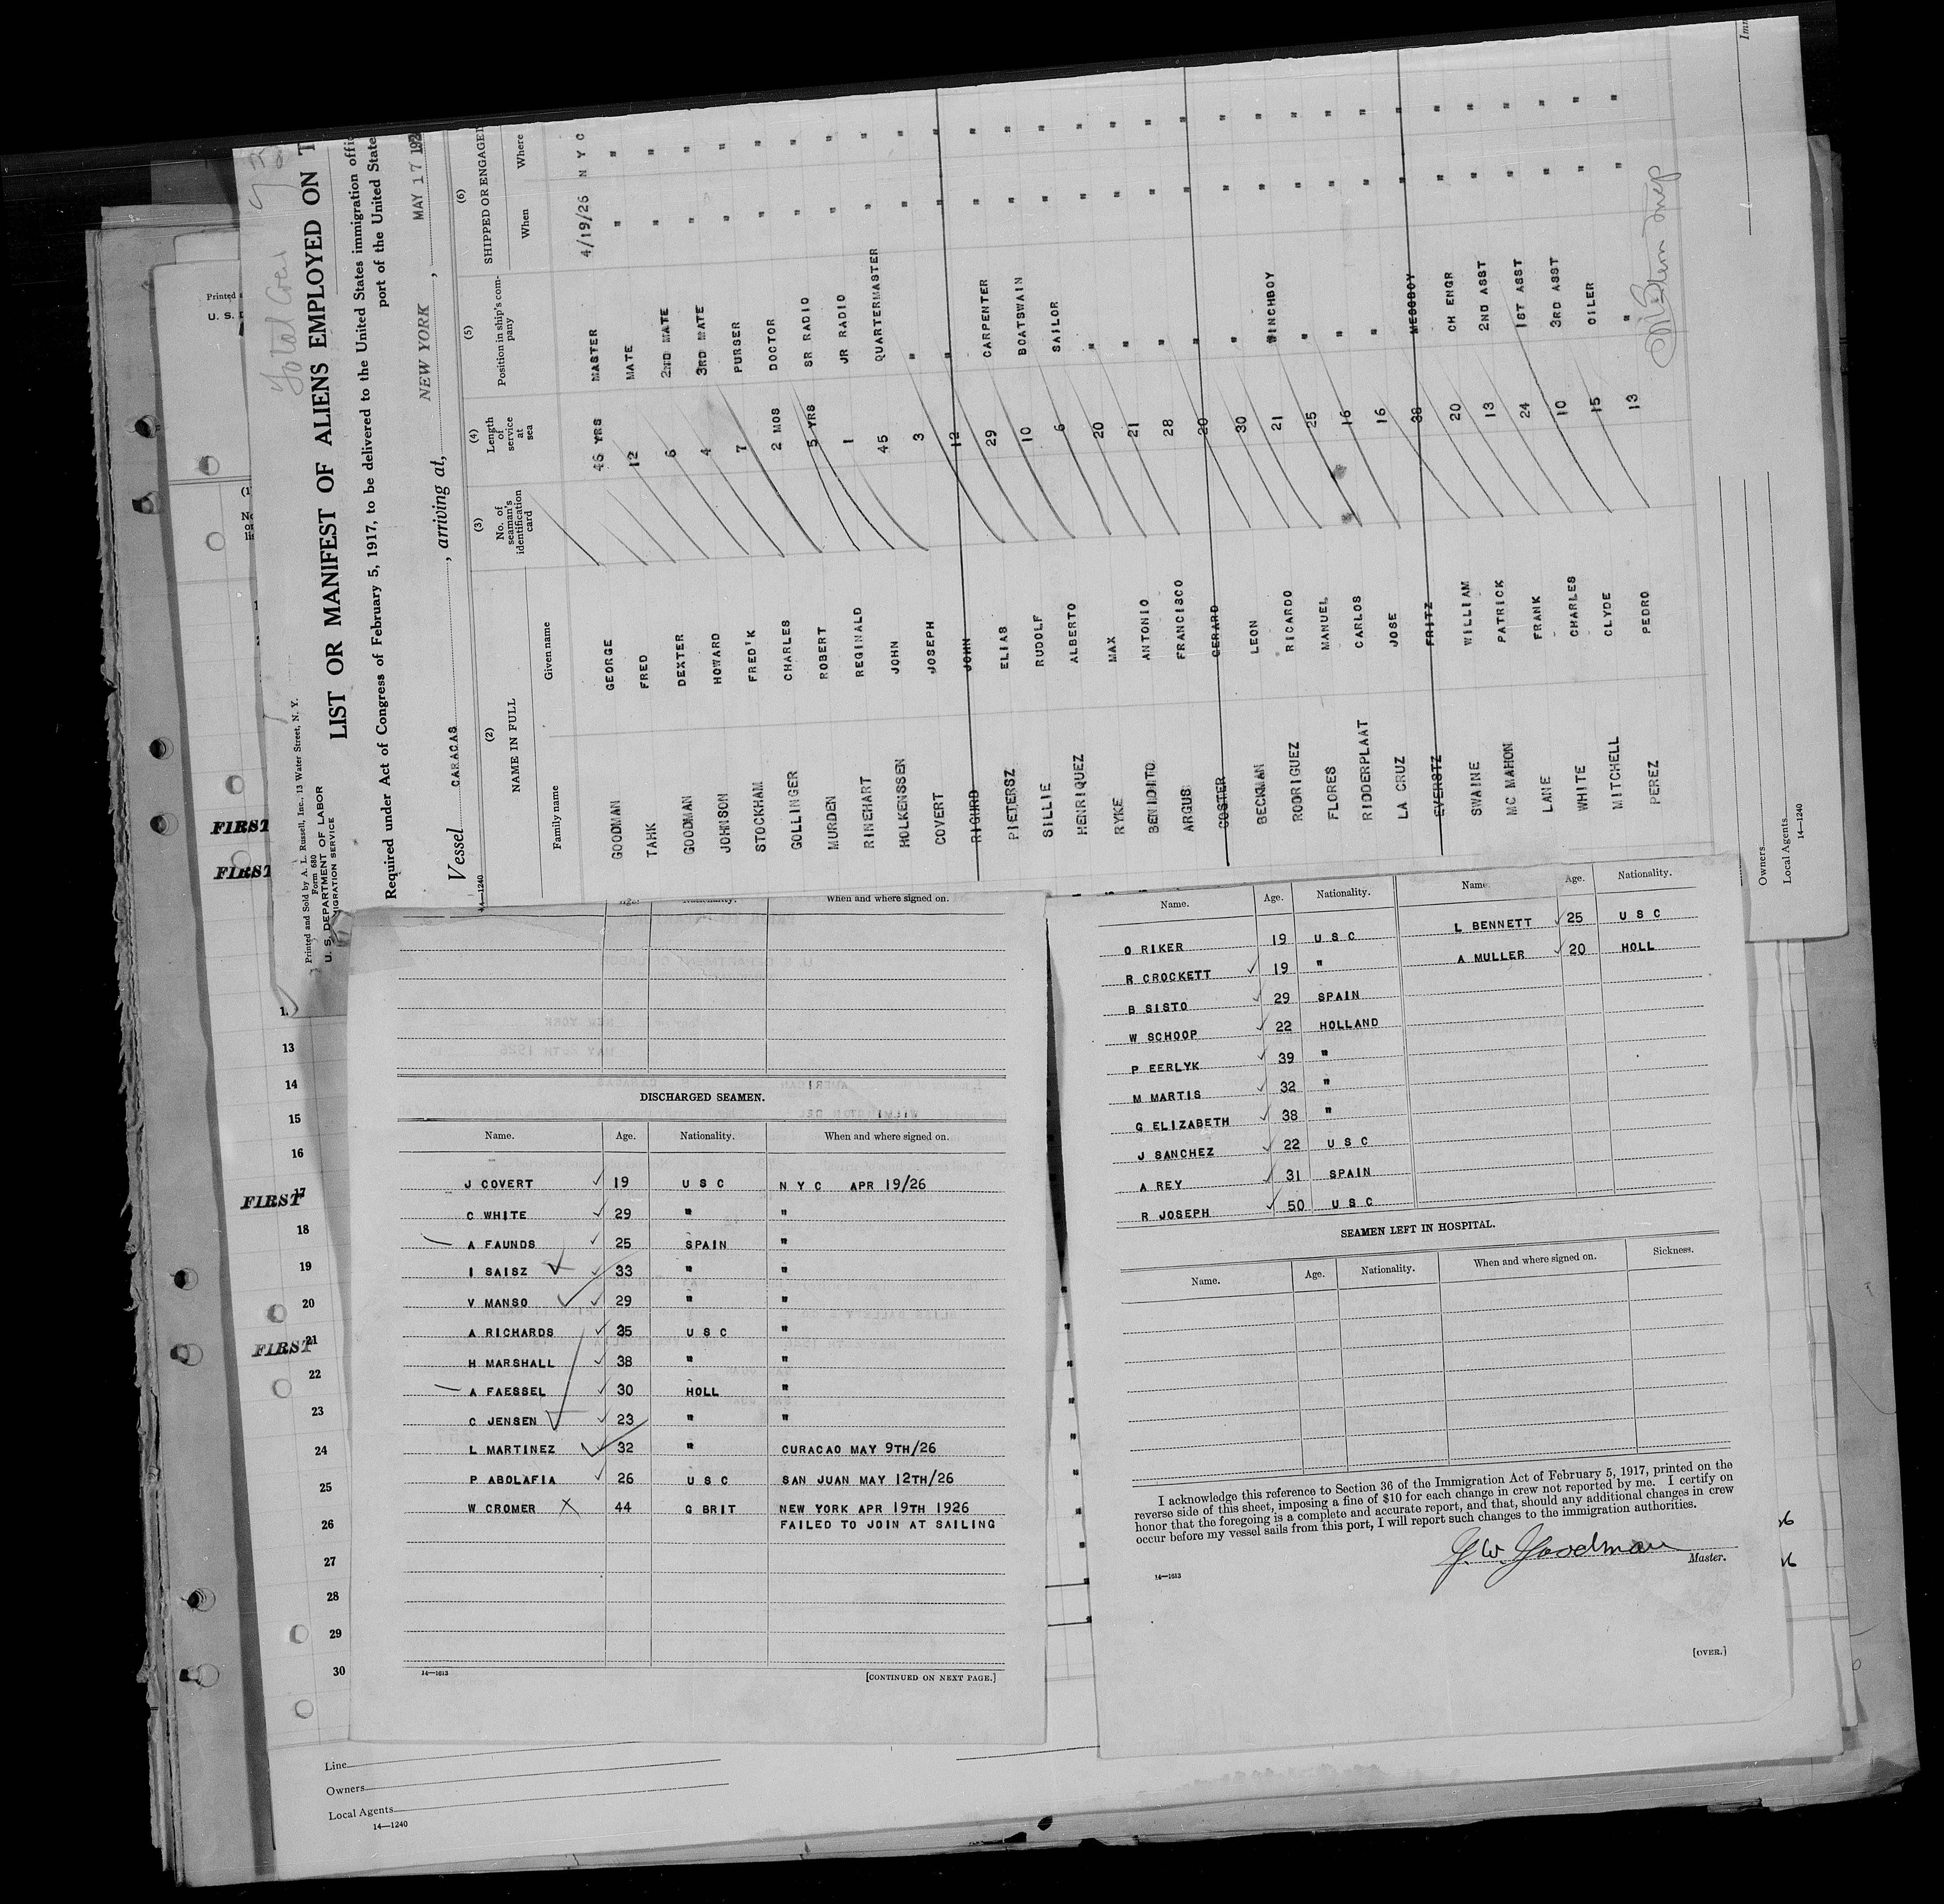 Total Crew
LIST OR MANIFEST OF ALIENS EMPLOYED ON T
Required under Act of Congress of February 5, 1917, to be delivered to the United States immigration offic
port of the United State
Printed and Sold by A. L. Russell, Inc., 13 Water Street, N. Y.
Form 680
U. S. DEPARTMENT OF LABOR
IGRATION SERVICE
Vessel CARACAS, arriving at, NEW YORK, MAY 17 192
14—1240
(2) (3) (4) (5) (6)
NAME IN FULL No. of seaman's identification card Length of service at sea Position in ship's company SHIPPED OR ENGAGED
Family name Given name When Where
GOODMAN GEORGE 46 YRS MASTER 4/19/26 N Y C
TAHK FRED 12 MATE " "
GOODMAN DEXTER 6 2ND MATE " "
JOHNSON HOWARD 4 3RD MATE " "
STOCKHAM FRED'K 7 PURSER " "
GOLLINGER CHARLES 2 MOS DOCTOR " "
MURDEN ROBERT 5 YRS SR RADIO " "
RINEHART REGINALD 1 JR RADIO " "
HOLKENSSEN JOHN 45 QUARTERMASTER " "
COVERT JOSEPH 3 " " "
RIGHRD JOHN 12 " " "
PIETERSZ ELIAS 29 CARPENTER " "
SILLIE RUDOLF 10 BOATSWAIN " "
HENRIQUEZ ALBERTO 6 SAILOR " "
RYKE MAX 20 " " "
BENIDITO ANTONIO 21 " " "
ARGUS FRANCISCO 28 " " "
COSTER GERARD 20 " " "
BECKMAN LEON 30 " " "
RODRIGUEZ RICARDO 21 WINCHBOY " "
FLORES MANUEL 25 " " "
RIDDERPLAAT CARLOS 16 " " "
LA CRUZ JOSE 16 " " "
EVERSTZ FRITZ 38 MESSBOY " "
SWAINE WILLIAM 20 CH ENGR " "
MC MAHON PATRICK 13 2ND ASST " "
LANE FRANK 24 1ST ASST " "
WHITE CHARLES 10 3RD ASST " "
MITCHELL CLYDE 15 OILER " "
PEREZ PEDRO 13 " " "
Owners
Local Agents
14—1240
Printed
U. S. D
FIRST
FIRST
13
14
15
16
FIRST 17
18
19
20
FIRST 21
22
23
24
25
26
27
28
29
30
Line
Owners
Local Agents
14—1240
When and where signed on.
DISCHARGED SEAMEN.
Name. Age. Nationality. When and where signed on.
J COVERT 19 U S C N Y C APR 19/26
C WHITE 29 " "
A FAUNDS 25 SPAIN "
I SAISZ 33 " "
V MANSO 29 " "
A RICHARDS 35 U S C "
H MARSHALL 38 " "
A FAESSEL 30 HOLL "
C JENSEN 23 " "
L MARTINEZ 32 " CURACAO MAY 9TH/26
P ABOLAFIA 26 U S C SAN JUAN MAY 12TH/26
W CROMER X 44 G BRIT NEW YORK APR 19TH 1926
FAILED TO JOIN AT SAILING
14—1613
[CONTINUED ON NEXT PAGE.]
Name. Age. Nationality. Name. Age. Nationality.
O RIKER 19 U S C L BENNETT 25 U S C
R CROCKETT 19 " A MULLER 20 HOLL
B SISTO 29 SPAIN
W SCHOOP 22 HOLLAND
P EERLYK 39 "
M MARTIS 32 "
G ELIZABETH 38 "
J SANCHEZ 22 U S C
A REY 31 SPAIN
R JOSEPH 50 U S C
SEAMEN LEFT IN HOSPITAL.
Name. Age. Nationality. When and where signed on. Sickness.
I acknowledge this reference to Section 36 of the Immigration Act of February 5, 1917, printed on the
reverse side of this sheet, imposing a fine of $10 for each change in crew not reported by me. I certify on
honor that the foregoing is a complete and accurate report, and that, should any additional changes in crew
occur before my vessel sails from this port, I will report such changes to the immigration authorities.
G. W. Goodman
Master.
14—1613
[OVER.]